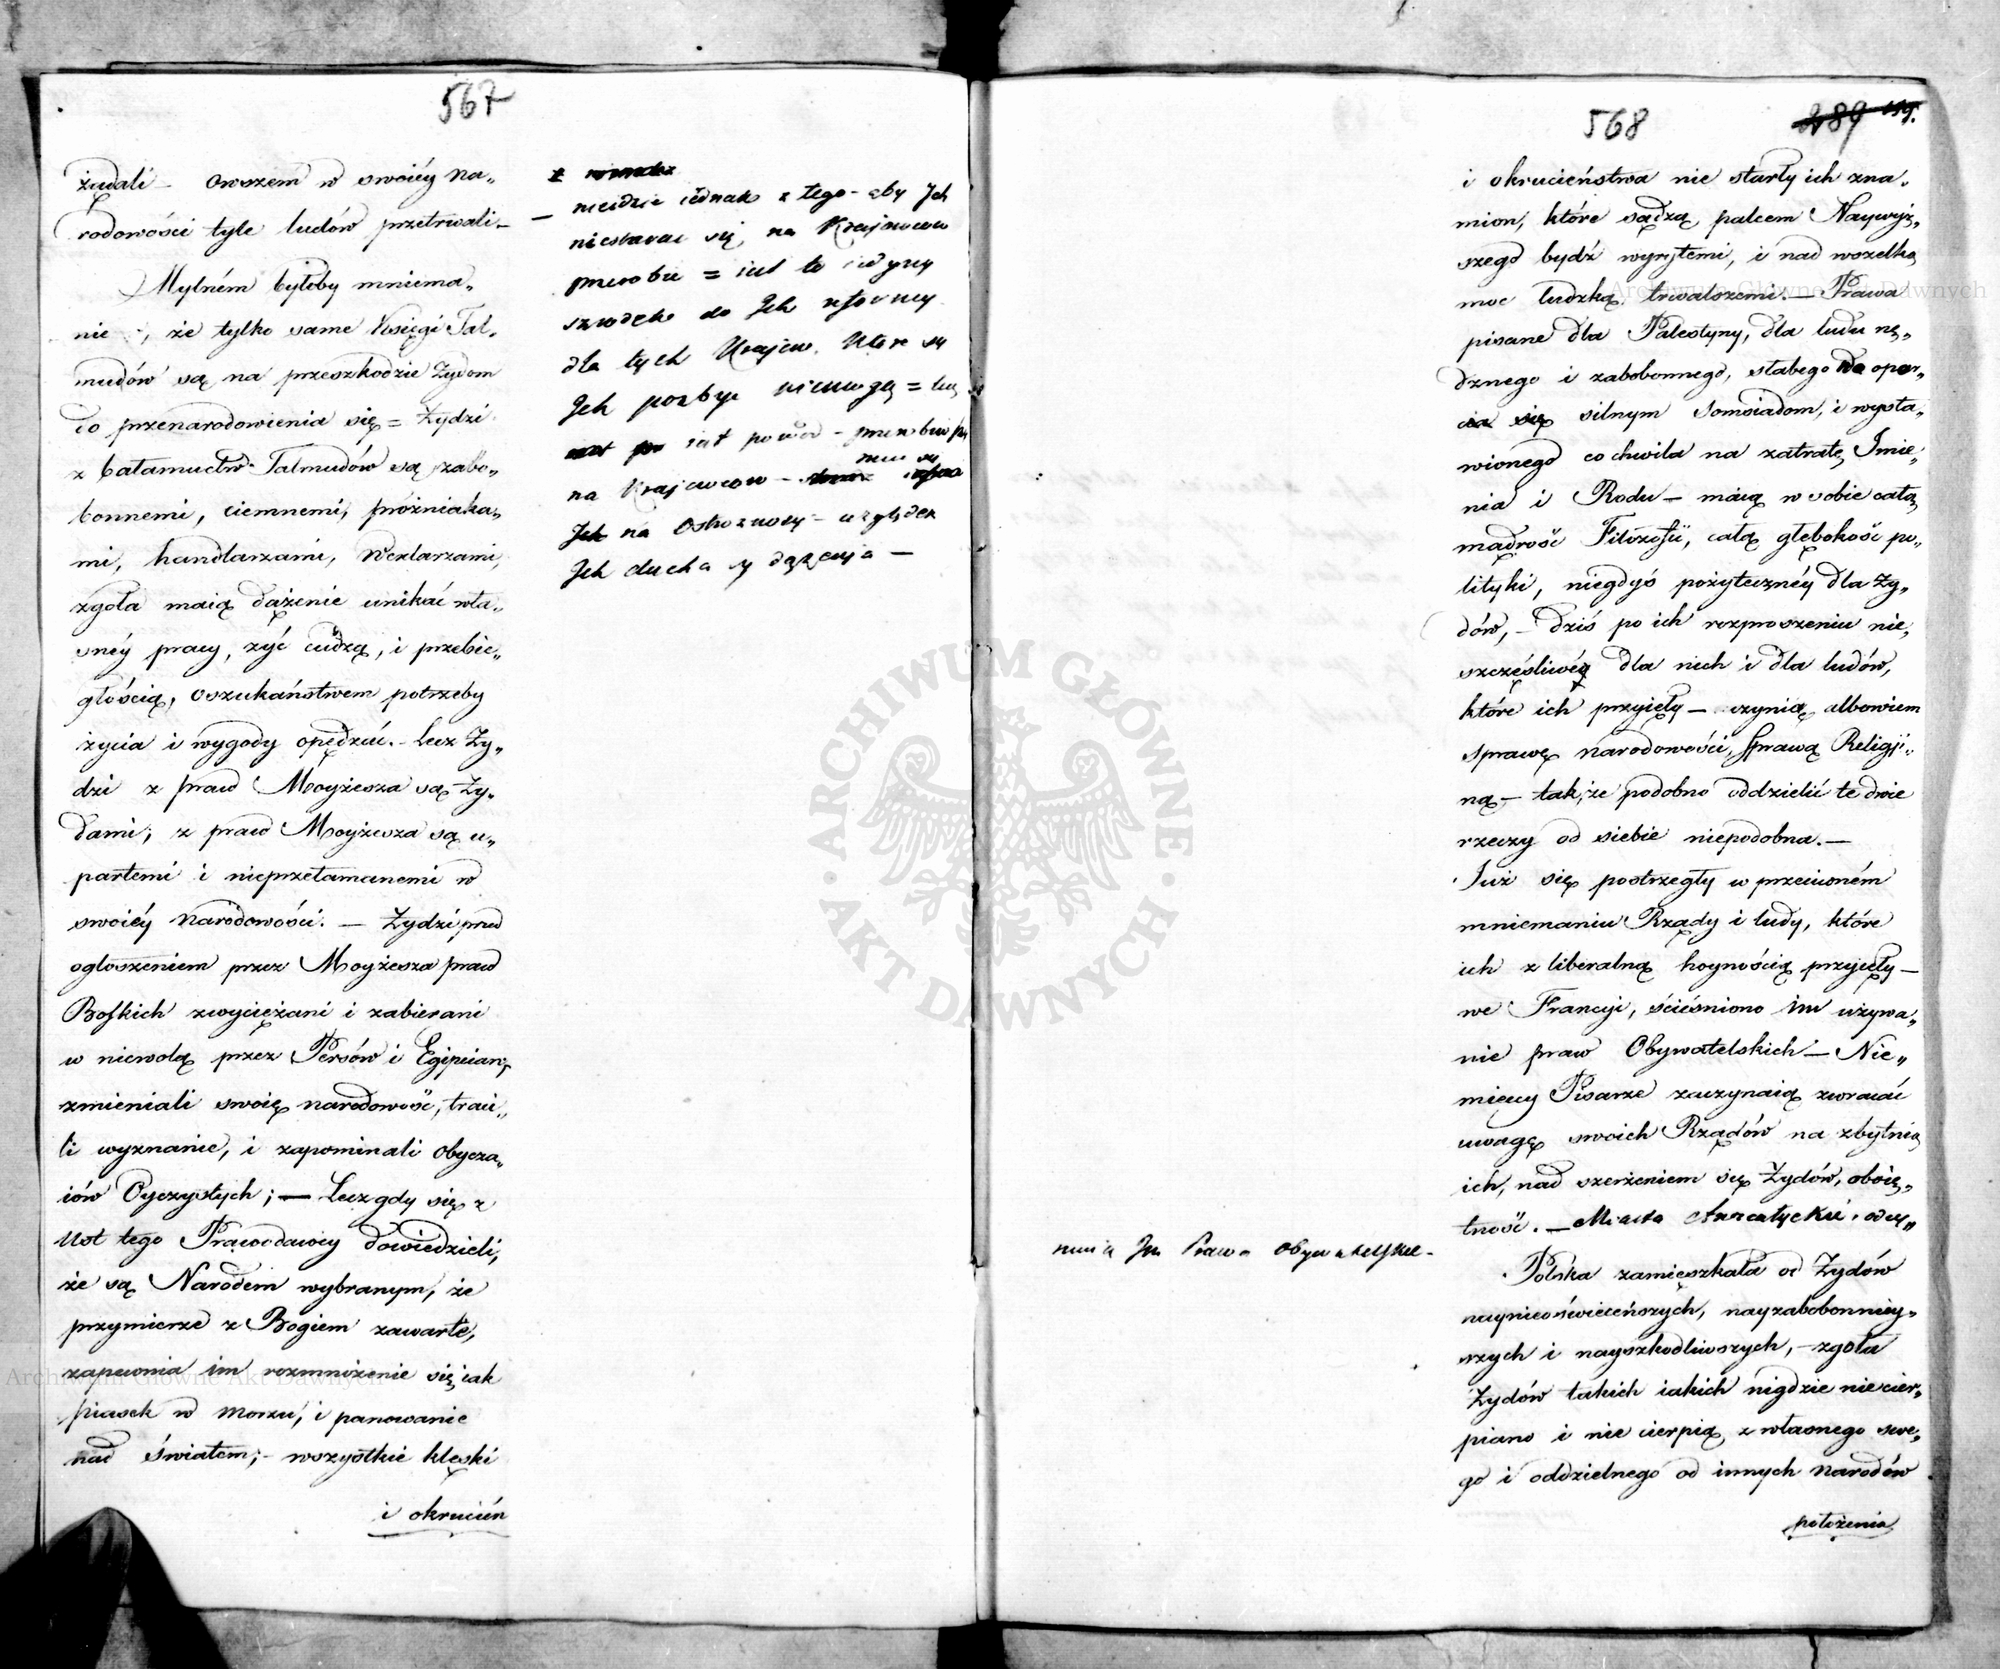 567
żądali – owszem w swoiéy na„
rodowości tyle ludów przetrwali –
Mylném byłoby mniema„
nie, że tylko same Księgi Tal„
mudów są na przeszkodzie Żydom
do przenarodowienia się = Żydzi
z bałamuctw Talmudów są zabo„
bonnemi, ciemnemi, próżniaka„
mi, handlarzami, Wexlarzami,
zgoła maią dążenie unikać wła„
snéy pracy, żyć cudzą, i przebie„
głością, oszukaństwem potrzeby
życia i wygody opędzać. – Lecz Ży„
dzi z praw Moyżesza są Ży„
dami; z praw Moyżesza są u„
partemi i nieprzełamanemi w
swoiéy narodowości. – Żydzi przed
ogłoszeniem przez Moyżesza praw
Boskich zwyciężani i zabierani
w niewolą przez Persów i Egipcian,
zmieniali swoię narodowość, traci„
li wyznanie, i zapominali obycza„
iów Oyczystych; – Lecz gdy się z
ust tego Prawodawcy dowiedzieli,
że są Narodem wybranym, że
przymierze z Bogiem zawarte,
zapewnia im rozmnożenie się, iak
piasek w morzu, i panowanie
nad światem; – wszystkie klęski
i okrucień
– nieidzie iednak z tego – aby Ich
niestarac się, na Kraiowcow
przerobic = iest to iedyny
szrodek do Ich reformy
dla tych Kraiow, ktore się
Ich pozbyc niemogą = lecz
iest powod – przerobiwszy
na Kraiowcow –
Ich na Ostroznosci – wzgledem
Ich ducha y dązenia –
568
289
i okrucieństwa nie starły ich zna„
mion, które sądzą palcem Naywyż„
szego bydź wyrytemi, i nad wszelką
moc ludzką trwalszemi. – Prawa
pisane dla Palestyny, dla ludu nę„
dznego i zabobonnego, słabego do opar„
cia się silnym Somsiadom, i wysta„
wionego co chwila na zatratę Imie„
nia i Rodu – maią w sobie całą
mądrość Filozofii, całą głębokość po„
lityki, niegdyś pożytecznéy dla Ży„
dów, – dziś po ich rozproszeniu nie„
szczęśliwéy dla nich i dla ludów,
które ich przyięły – czynią albowiem
sprawę narodowości, sprawą Religij„
ną – tak, że podobno oddzielić te dwie
rzeczy od siebie niepodobna. –
Już się postrzegły w przeciwném
mniemaniu Rządy i ludy, które
ich z liberalną hoynością przyjęły –
we Francyi, ścieśniono im używa„
nie praw Obywatelskich – Nie„
mieccy Pisarze zaczynaią zwracać
uwagę swoich Rządów na zbytnią
ich, nad szerzeniem się Żydów, oboię„
tność. – Miasta Anzeatyckie odey„
muią Im Prawa Obywatelskie –
Polska zamieszkała od Żydów
naynieoświeceńszych, nayzabobonniey„
szych i nayszkodliwszych, – zgoła
Żydów takich iakich nigdzie niecier„
piano i nie cierpią, z własnego swe„
go i oddzielnego od innych Narodów
położenia
ARCHIWUM GŁÓWNE AKT DAWNYCH
Archiwum Główne Akt Dawnych
Archiwum Główne Akt Dawnych